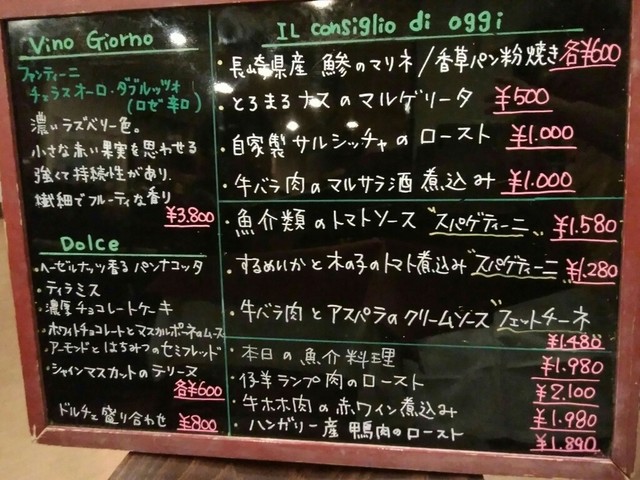 Vino Giorno
ファンティーニ
チェラスオーロ・ダブルッツォ
(ロゼ辛口)
濃いラズベリー色。
小さな赤い果実を思わせる
強くて持続性があり
繊細でフルーティな香り
¥3.800
Dolce
・ヘーゼルナッツ香るパンナコッタ
・ティラミス
・濃厚チョコレートケーキ
・ホワイトチョコレートとマスカルポーネのムース
・アーモンドとはちみつのセミフレッド
・シャインマスカットのテリーヌ
各¥600
ドルチェ盛り合わせ ¥800
IL consiglio di oggi
・長崎県産 鯵のマリネ/香草パン粉焼き 各¥600
・とろまるナスのマルゲリータ ¥500
・自家製サルシッチャのロースト ¥1.000
・牛バラ肉のマルサラ酒煮込み ¥1.000
・魚介類のトマトソース "スパゲティーニ" ¥1.580
・するめいかと木の子のトマト煮込み "スパゲティーニ" ¥1.280
・牛バラ肉とアスパラのクリームソース "フェットチーネ"
¥1.480
・本日の魚介料理 ¥1.980
・仔羊ランプ肉のロースト ¥2.100
・牛ホホ肉の赤ワイン煮込み ¥1.980
・ハンガリー産 鴨肉のロースト ¥1.890